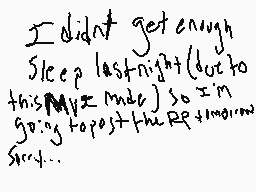 I didnt get enough
Sleep last night (due to
this MVI made) so I'm
going to post the RP tomorrow
Sorry...